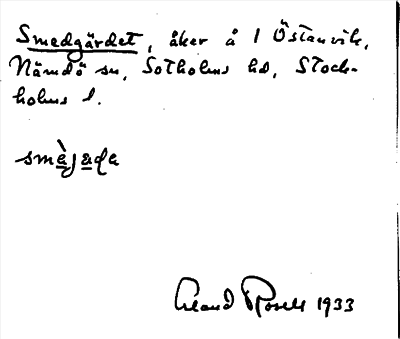 Smedgärdet, åker å 1 Östanvik,
Nämdö sn, Sotholms hd, Stock-
holms l.
smè̱ja̱ḍa
Erland Rosell 1933